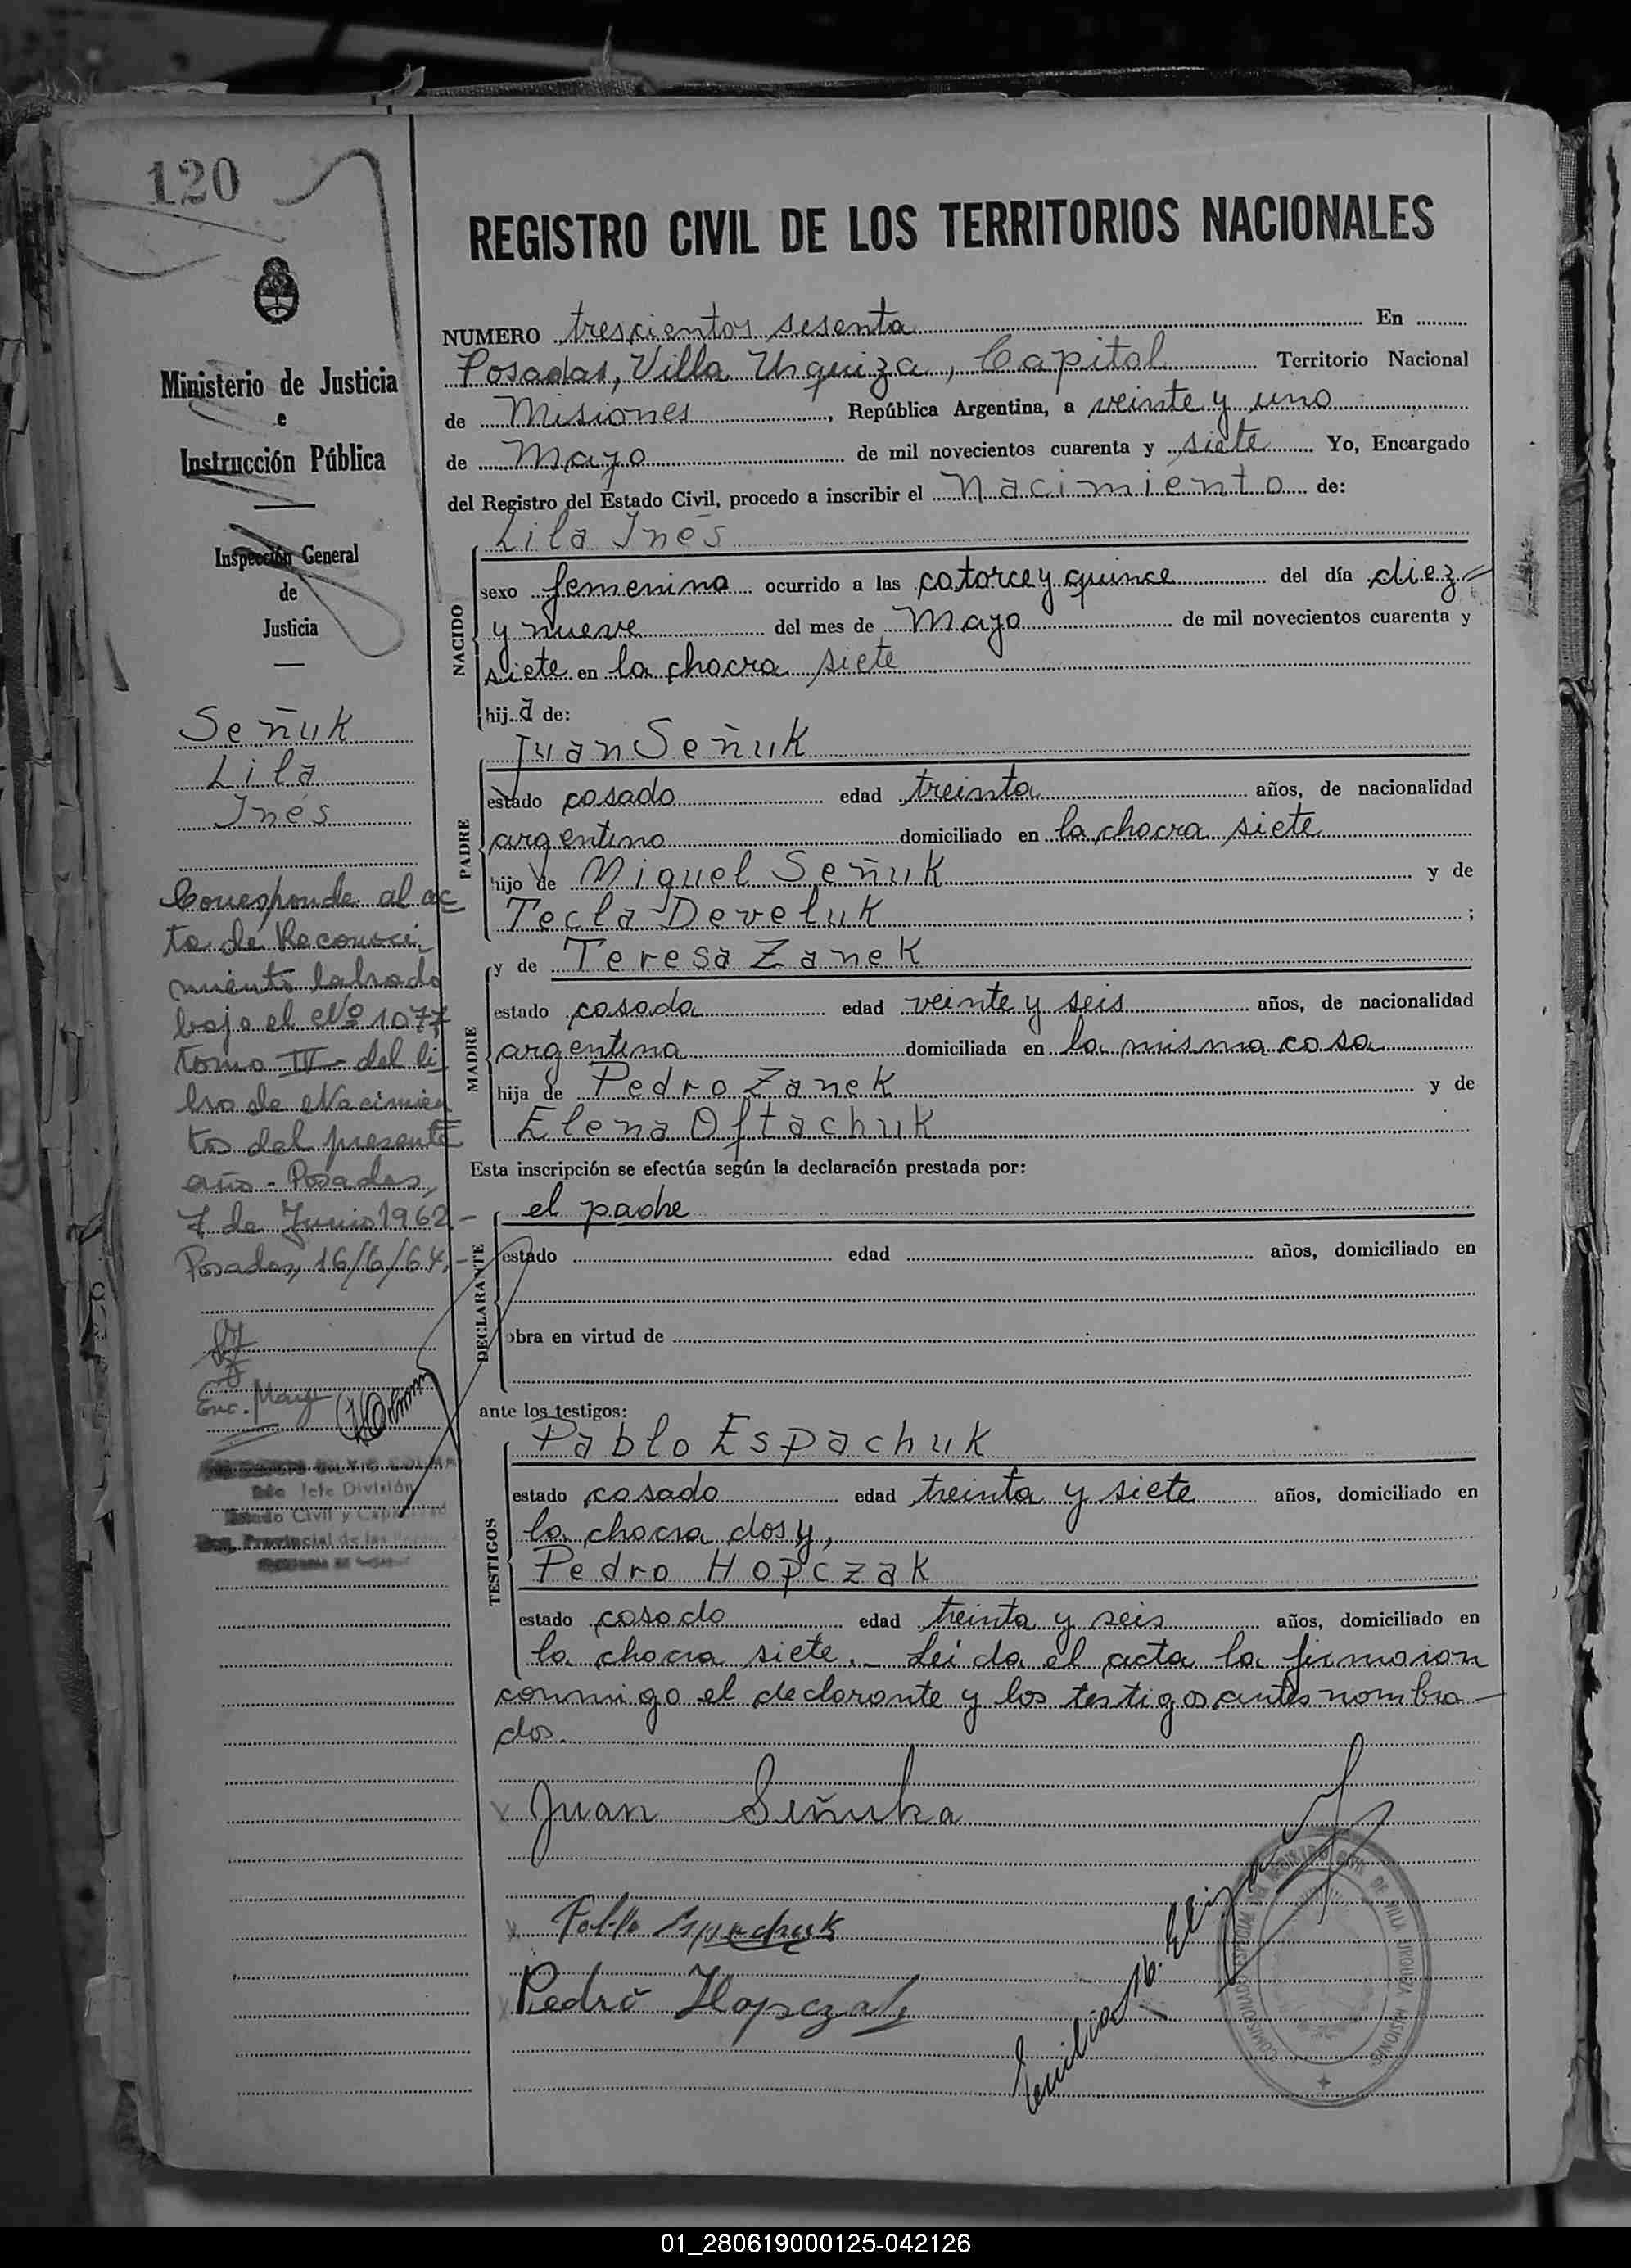 120
Ministerio de Justicia
e
Instrucción Pública
Inspección General
de
Justicia
Señuk
Lila
Inés
Corresponde al ac
ta de Reconoci
miento labrado
bajo el Nº 1077
tomo IV - del li
bro de Nacimien
tos del presente
año - Posadas,
7 de Junio 1962.-
Posadas, 16/6/64.-
Enc. Mayo
2do Jefe División
Estado Civil y Capacidad
Provincial de las
REGISTRO CIVIL DE LOS TERRITORIOS NACIONALES
NUMERO trescientos sesenta En
Posadas, Villa Urquiza, Capital Territorio Nacional
de Misiones, República Argentina, a veinte y uno
de Mayo de mil novecientos cuarenta y siete Yo, Encargado
del Registro del Estado Civil, procedo a inscribir el Nacimiento de:
NACIDO
Lila Inés
sexo femenino ocurrido a las catorce y quince del día diez=
y nueve del mes de Mayo de mil novecientos cuarenta y
siete en la chacra siete
hija de:
PADRE
Juan Señuk
estado casado edad treinta años, de nacionalidad
argentino domiciliado en la chacra siete
hijo de Miguel Señuk y de
Tecla Develuk ;
MADRE
y de Teresa Zanek
estado casada edad veinte y seis años, de nacionalidad
argentina domiciliada en la misma casa
hija de Pedro Zanek y de
Elena Oftachuk
Esta inscripción se efectúa según la declaración prestada por:
DECLARANTE
el padre
estado edad años, domiciliado en
obra en virtud de
ante los testigos:
TESTIGOS
Pablo Espachuk
estado casado edad treinta y siete años, domiciliado en
la chacra dos y,
Pedro Hopczak
estado casado edad treinta y seis años, domiciliado en
la chacra siete.- Leida el acta la firmaron
conmigo el declarante y los testigos antes nombra-
dos.
Juan Señuka
Pablo Espachuk
Pedro Hopczak
Emilio
COMISIONADO ESPECIAL DEL REGISTRO CIVIL DE VILLA URQUIZA MISIONES
01_280619000125-042126